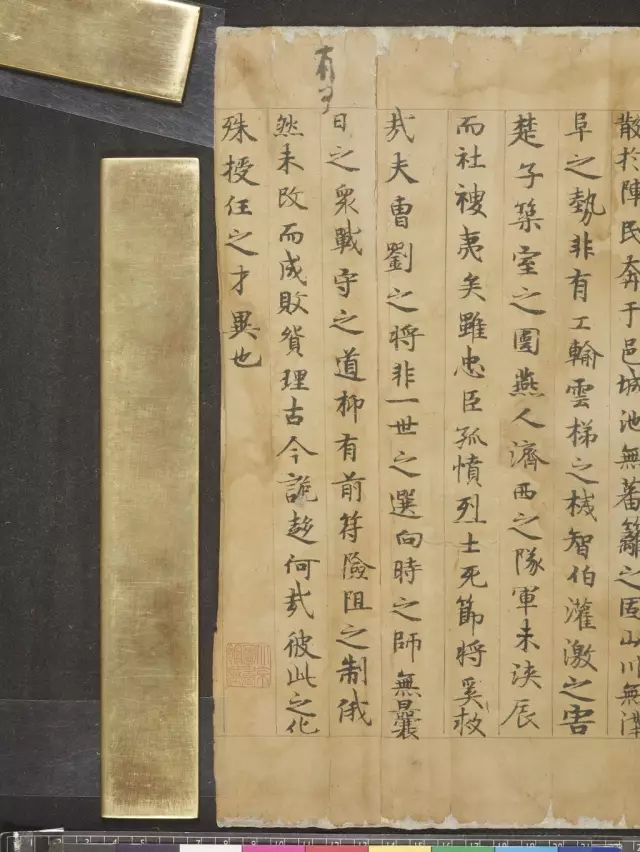 散於陣民奔于邑城池無蕃籬之固山川無溝
阜之勢非有工輸雲梯之械智伯灌激之害
楚子築室之圍燕人濟西之隊軍未浹辰
而社稷夷矣雖忠臣孤憤烈士死節將奚救
哉夫曹劉之將非一世之選向時之師無曩
日之衆戰守之道抑有前符險阻之制俄
然未改而成敗貿理古今詭趍何哉彼此之化
殊授任之才異也